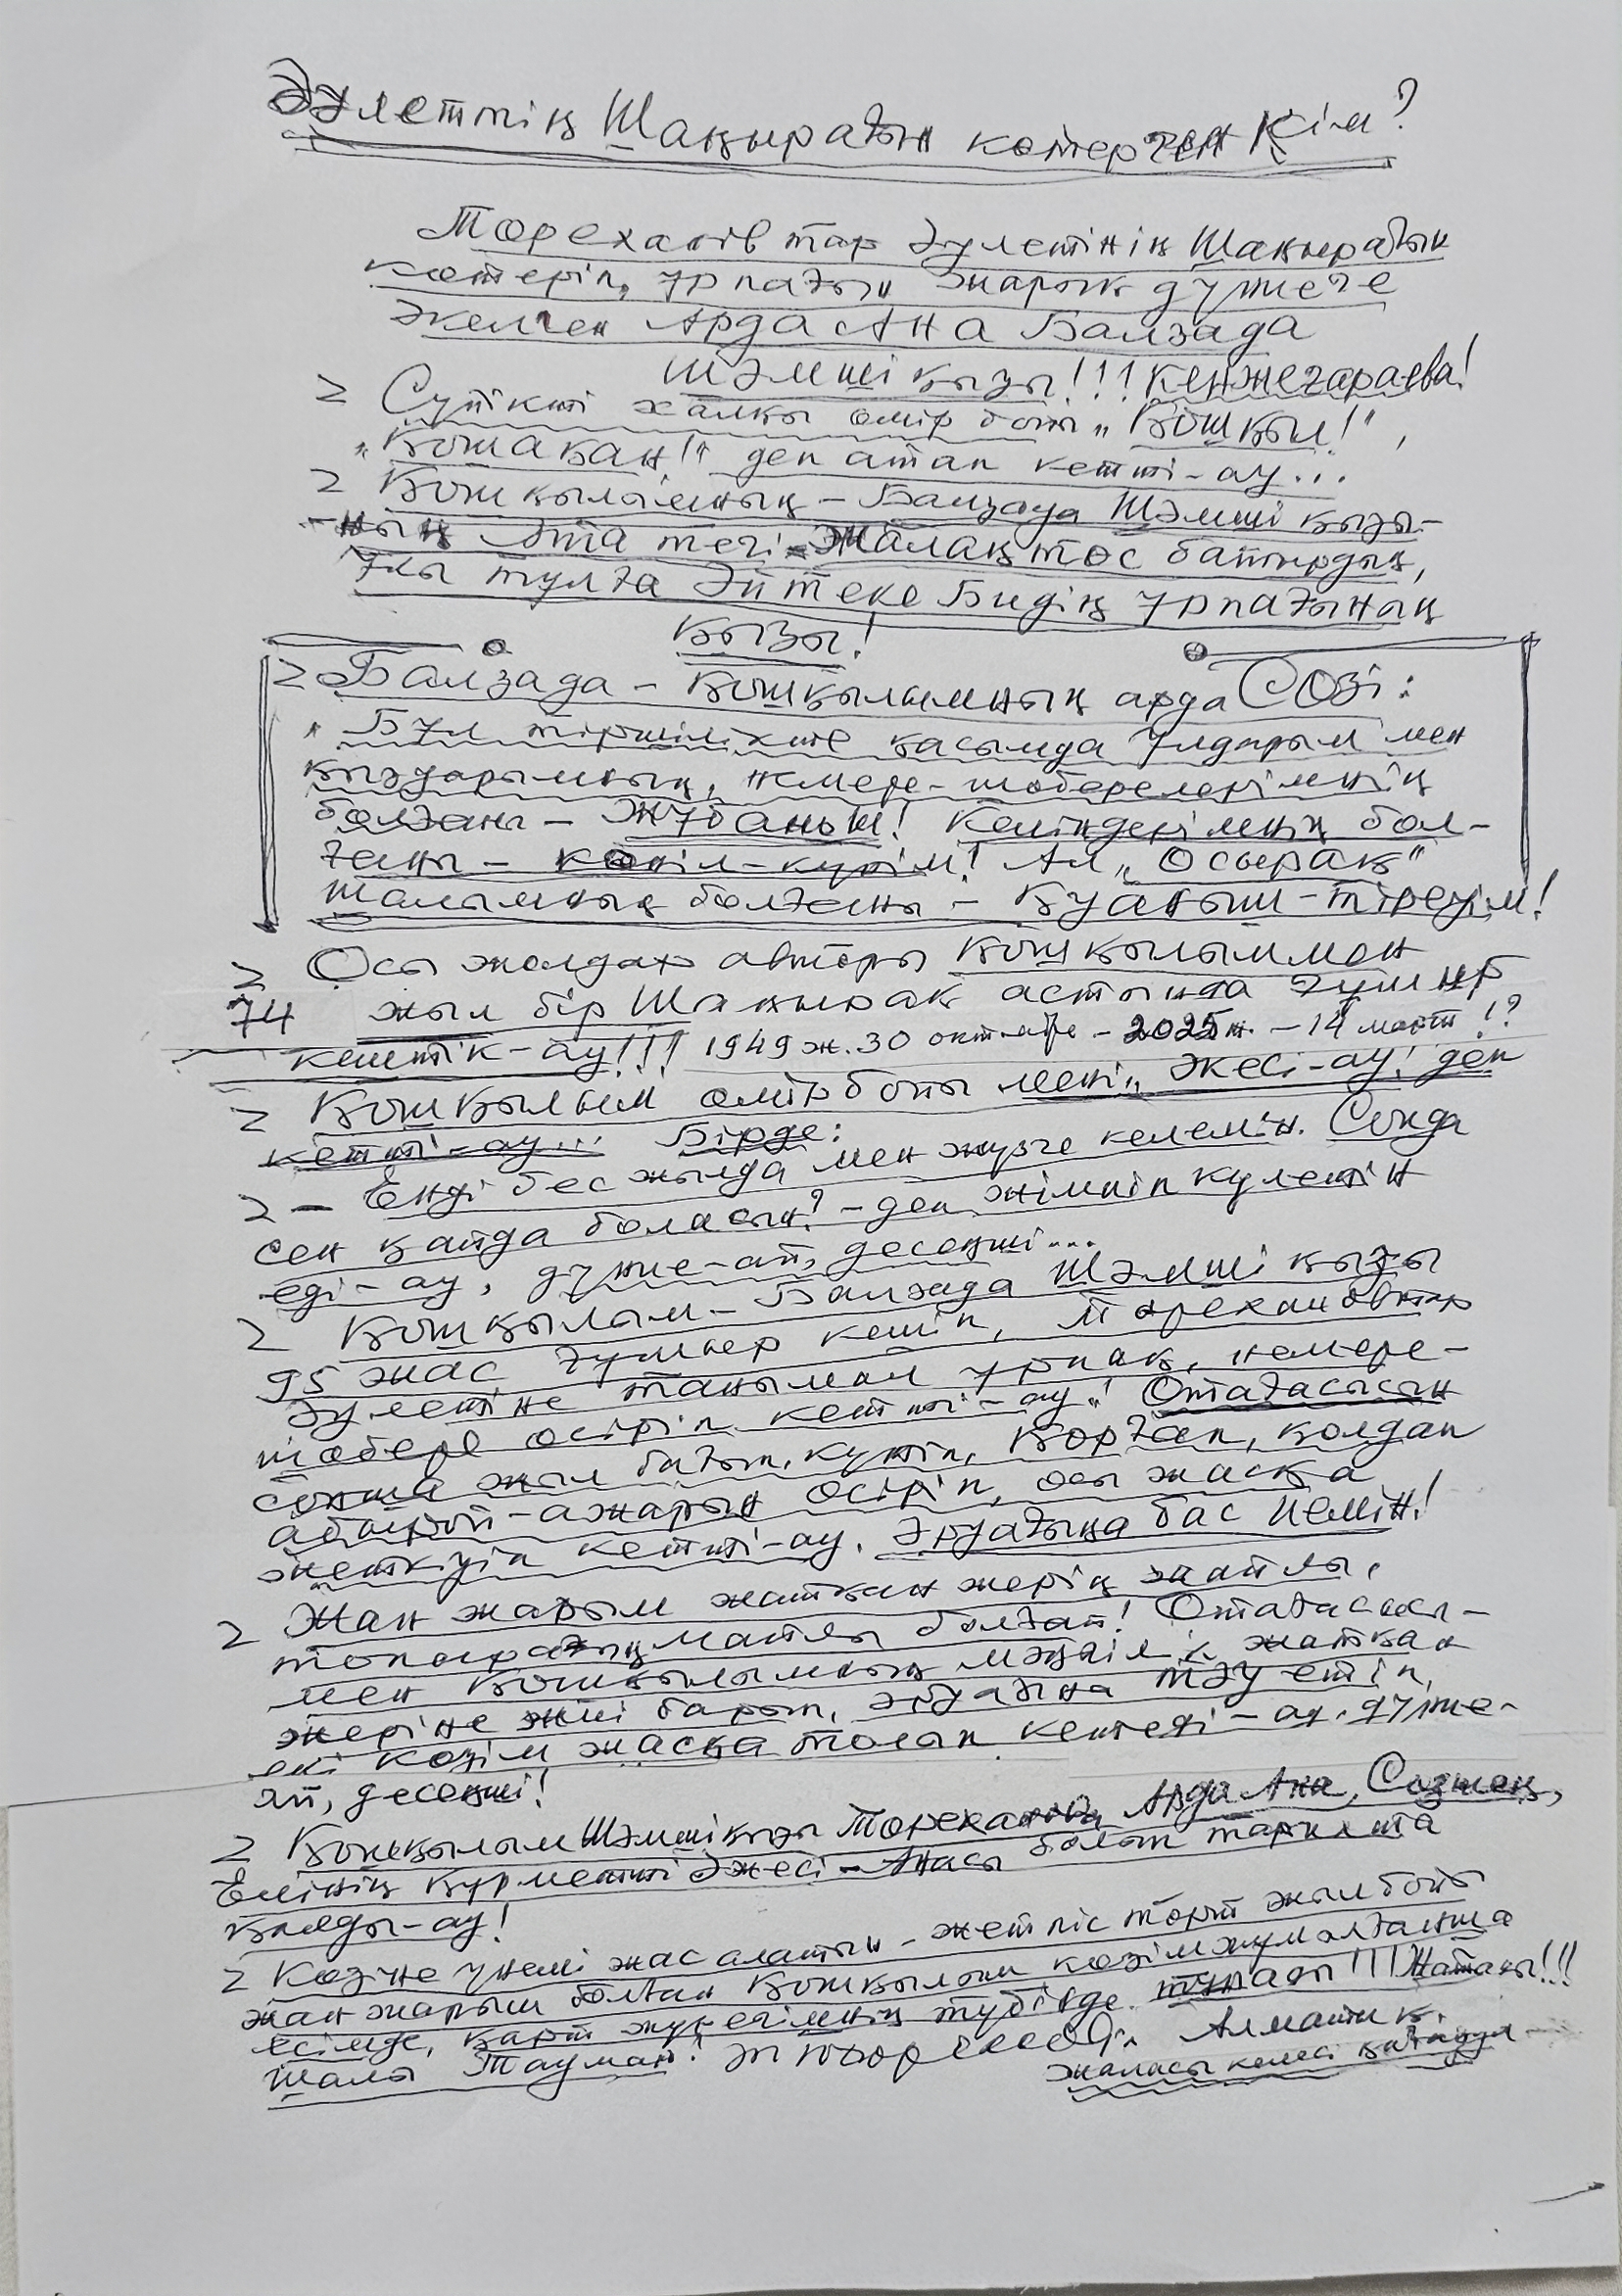 Әулеттің Шаңырағын көтерген Кім?
Төрехановтар әулетінің Шаңырағын
көтеріп, ұрпағын жарық дүниеге
әкелген Арда Ана Балзада
Шәмші қызы!!! Кенжеғараева!
Сүйікті халқы өмір бойы „Қошқыл!",
„Қошақан!" деп атап кетті-ау...
Қошқылымның – Балзада Шәмші қызы-
-ның Ата тегі Жалаңтөс батырдың,
Ұлы тұлға Әйтеке Бидің ұрпағының
қызы!
Балзада – Қошқылымның арда Сөзі:
„Бұл тіршілікте қасымда Ұлдарым мен
қыздарымның, немере-шөберелерімнің
болғаны – Жұбаныш! Келіндерімнің бол-
ғаны – көңіл-күйім! Ал „Осырақ"
шалымның болғаны – Қуаныш-тірегім!
Осы жолдар авторы Қошқылыммен
74 жыл бір Шаңырақ астында ғұмыр
кештік-ау!!! 1949 ж. 30 октябрь – 2025 ж. – 14 март!?
Қошқылым өмір бойы мені „Әкесі-ау! деп
кетті-ау... Бірде:
– Енді бес жылда мен жүзге келемін. Сонда
сен қайда боласын? – деп жымиып күлетін
еді-ау, дүние-ай, десеңші...
Қошқылым – Балзада Шәмші қызы
95 жас ғұмыр кешіп, Төрехановтар
әулетіне танымал ұрпақ, немере-
шөбере өсіріп кетті-ау! Отағасысын
сонша жыл бағып, күтіп, қорғап, қолдап
абырой-ажарын өсіріп, осы жасқа
жеткізіп кетті-ау. Әруағыңа бас иемін!
Жан жарым жатқан жерің жайлы,
топырағың майлы болғай! Отағасысы-
мен Қошқылымның мәңгілік жатқан
жеріне жиі барып, әруағына тәу етіп,
екі көзім жасқа толып кетеді-ау. дүние-
ай, десеңші!
Қошқылым Шәмшіқызы Төреханова Арда Ана,
Елінің құрметті Әжесі – Анасы болып тарихта
қалды-ау!
Көзіне үнемі жас алатын – жетпіс төрт жыл бойы
жан жарыш болған Қошқылын көзім жұмылғанша
есімде, қарт жүрегімнің түбінде тұрады!!! Жатады!!!
Шалы Тауман! Алматы қ.
жалғасы келесі қағазда